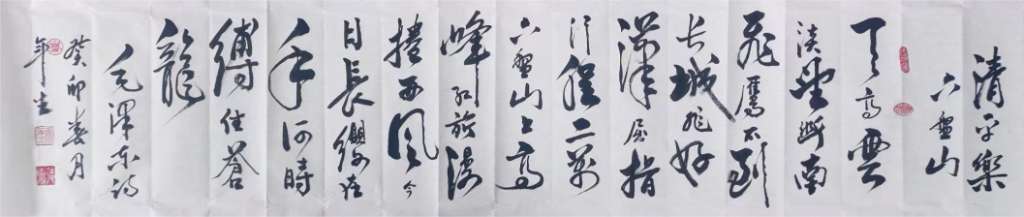 清平樂
六盤山
天高雲
淡望斷南
飛鴈不到
長城非好
漢屈指
行程二萬
六盤山上高
峰紅旗漫
捲西風今
日長纓在
手何時
縛住蒼
龍
毛澤東詩
癸卯春月
年